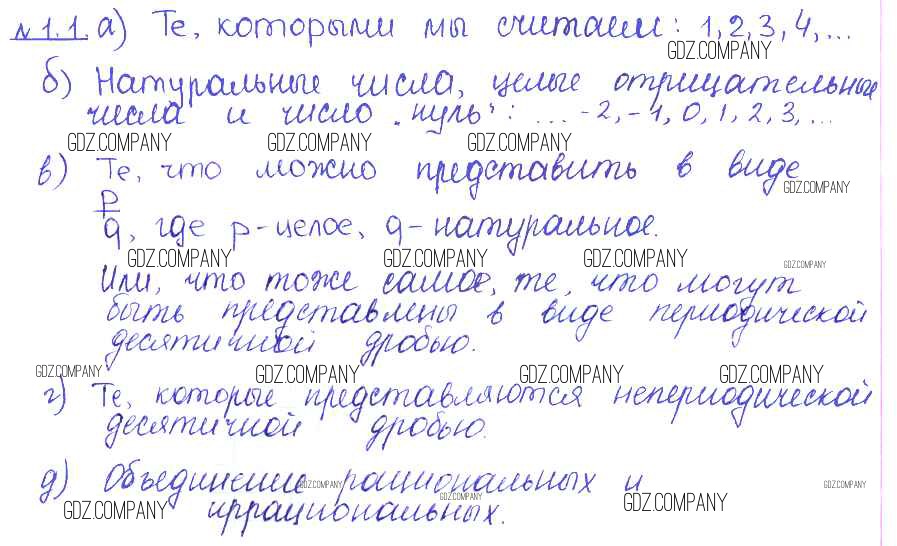 №1.1. а) Те, которыми мы считаем: 1, 2, 3, 4, ...
GDZ.COMPANY
б) Натуральные числа, целые отрицательные
числа и число „нуль": ... -2, -1, 0, 1, 2, 3, ...
GDZ.COMPANY GDZ.COMPANY GDZ.COMPANY
в) Те, что можно представить в виде
GDZ.COMPANY
p
q, где p - целое, q - натуральное.
GDZ.COMPANY GDZ.COMPANY GDZ.COMPANY GDZ.COMPANY
Или, что тоже самое, те, что могут
быть представлены в виде периодической
десятичной дробью.
GDZ.COMPANY GDZ.COMPANY GDZ.COMPANY GDZ.COMPANY
г) Те, которые представляются непериодической
десятичной дробью.
д) Объединение рациональных и
GDZ.COMPANY GDZ.COMPANY GDZ.COMPANY
GDZ.COMPANY GDZ.COMPANY
иррациональных.